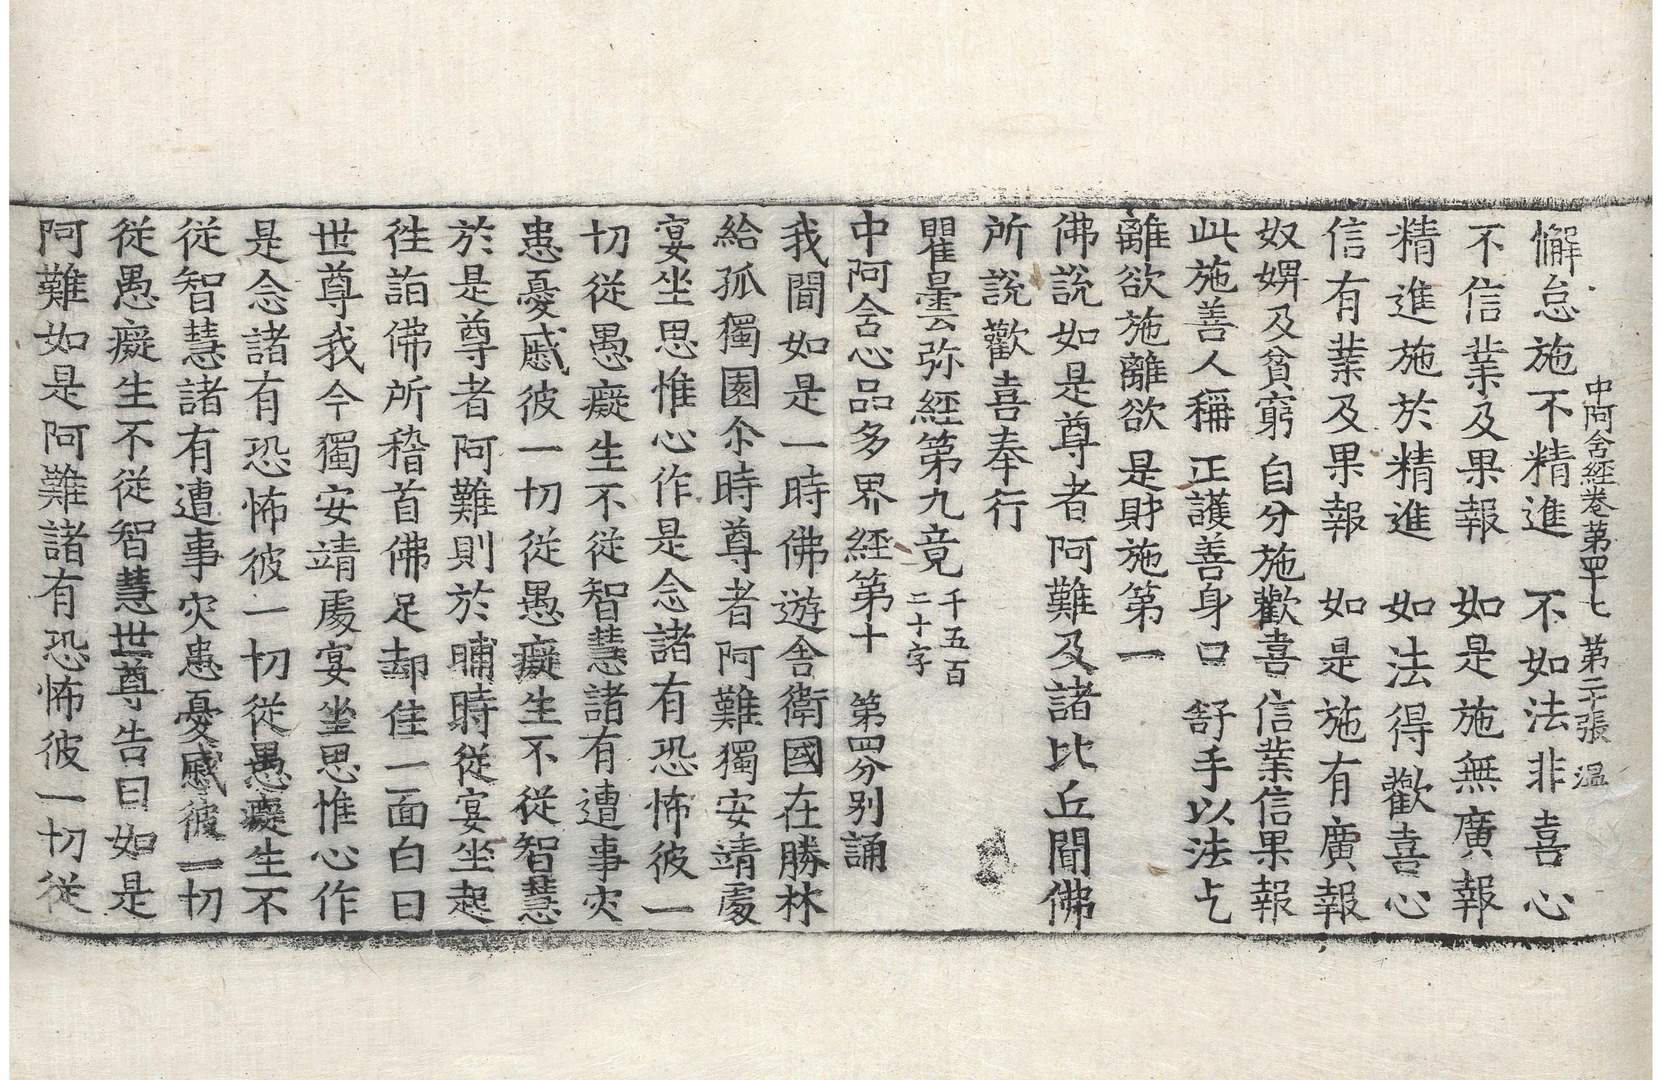 中阿含經卷第四十七　第二十張　溫
懈怠施不精進　不如法非喜心
不信業及果報　如是施無廣報
精進施於精進　如法得歡喜心
信有業及果報　如是施有廣報
奴婢及貧窮　自分施歡喜　信業信果報
此施善人稱　正護善身口　舒手以法乞
離欲施離欲　是財施第一
佛說如是尊者阿難及諸比丘聞佛
所說歡喜奉行
瞿曇弥經第九竟
千五百
二十字
中阿含心品多界經第十　第四分別誦
我聞如是一時佛遊舍衛國在勝林
給孤獨園尒時尊者阿難獨安靖處
宴坐思惟心作是念諸有恐怖彼一
切從愚癡生不從智慧諸有遭事灾
患憂慼彼一切從愚癡生不從智慧
於是尊者阿難則於晡時從宴坐起
往詣佛所稽首佛足却住一面白曰
世尊我今獨安靖處宴坐思惟心作
是念諸有恐怖彼一切從愚癡生不
從智慧諸有遭事灾患憂慼彼一切
從愚癡生不從智慧世尊告曰如是
阿難如是阿難諸有恐怖彼一切從